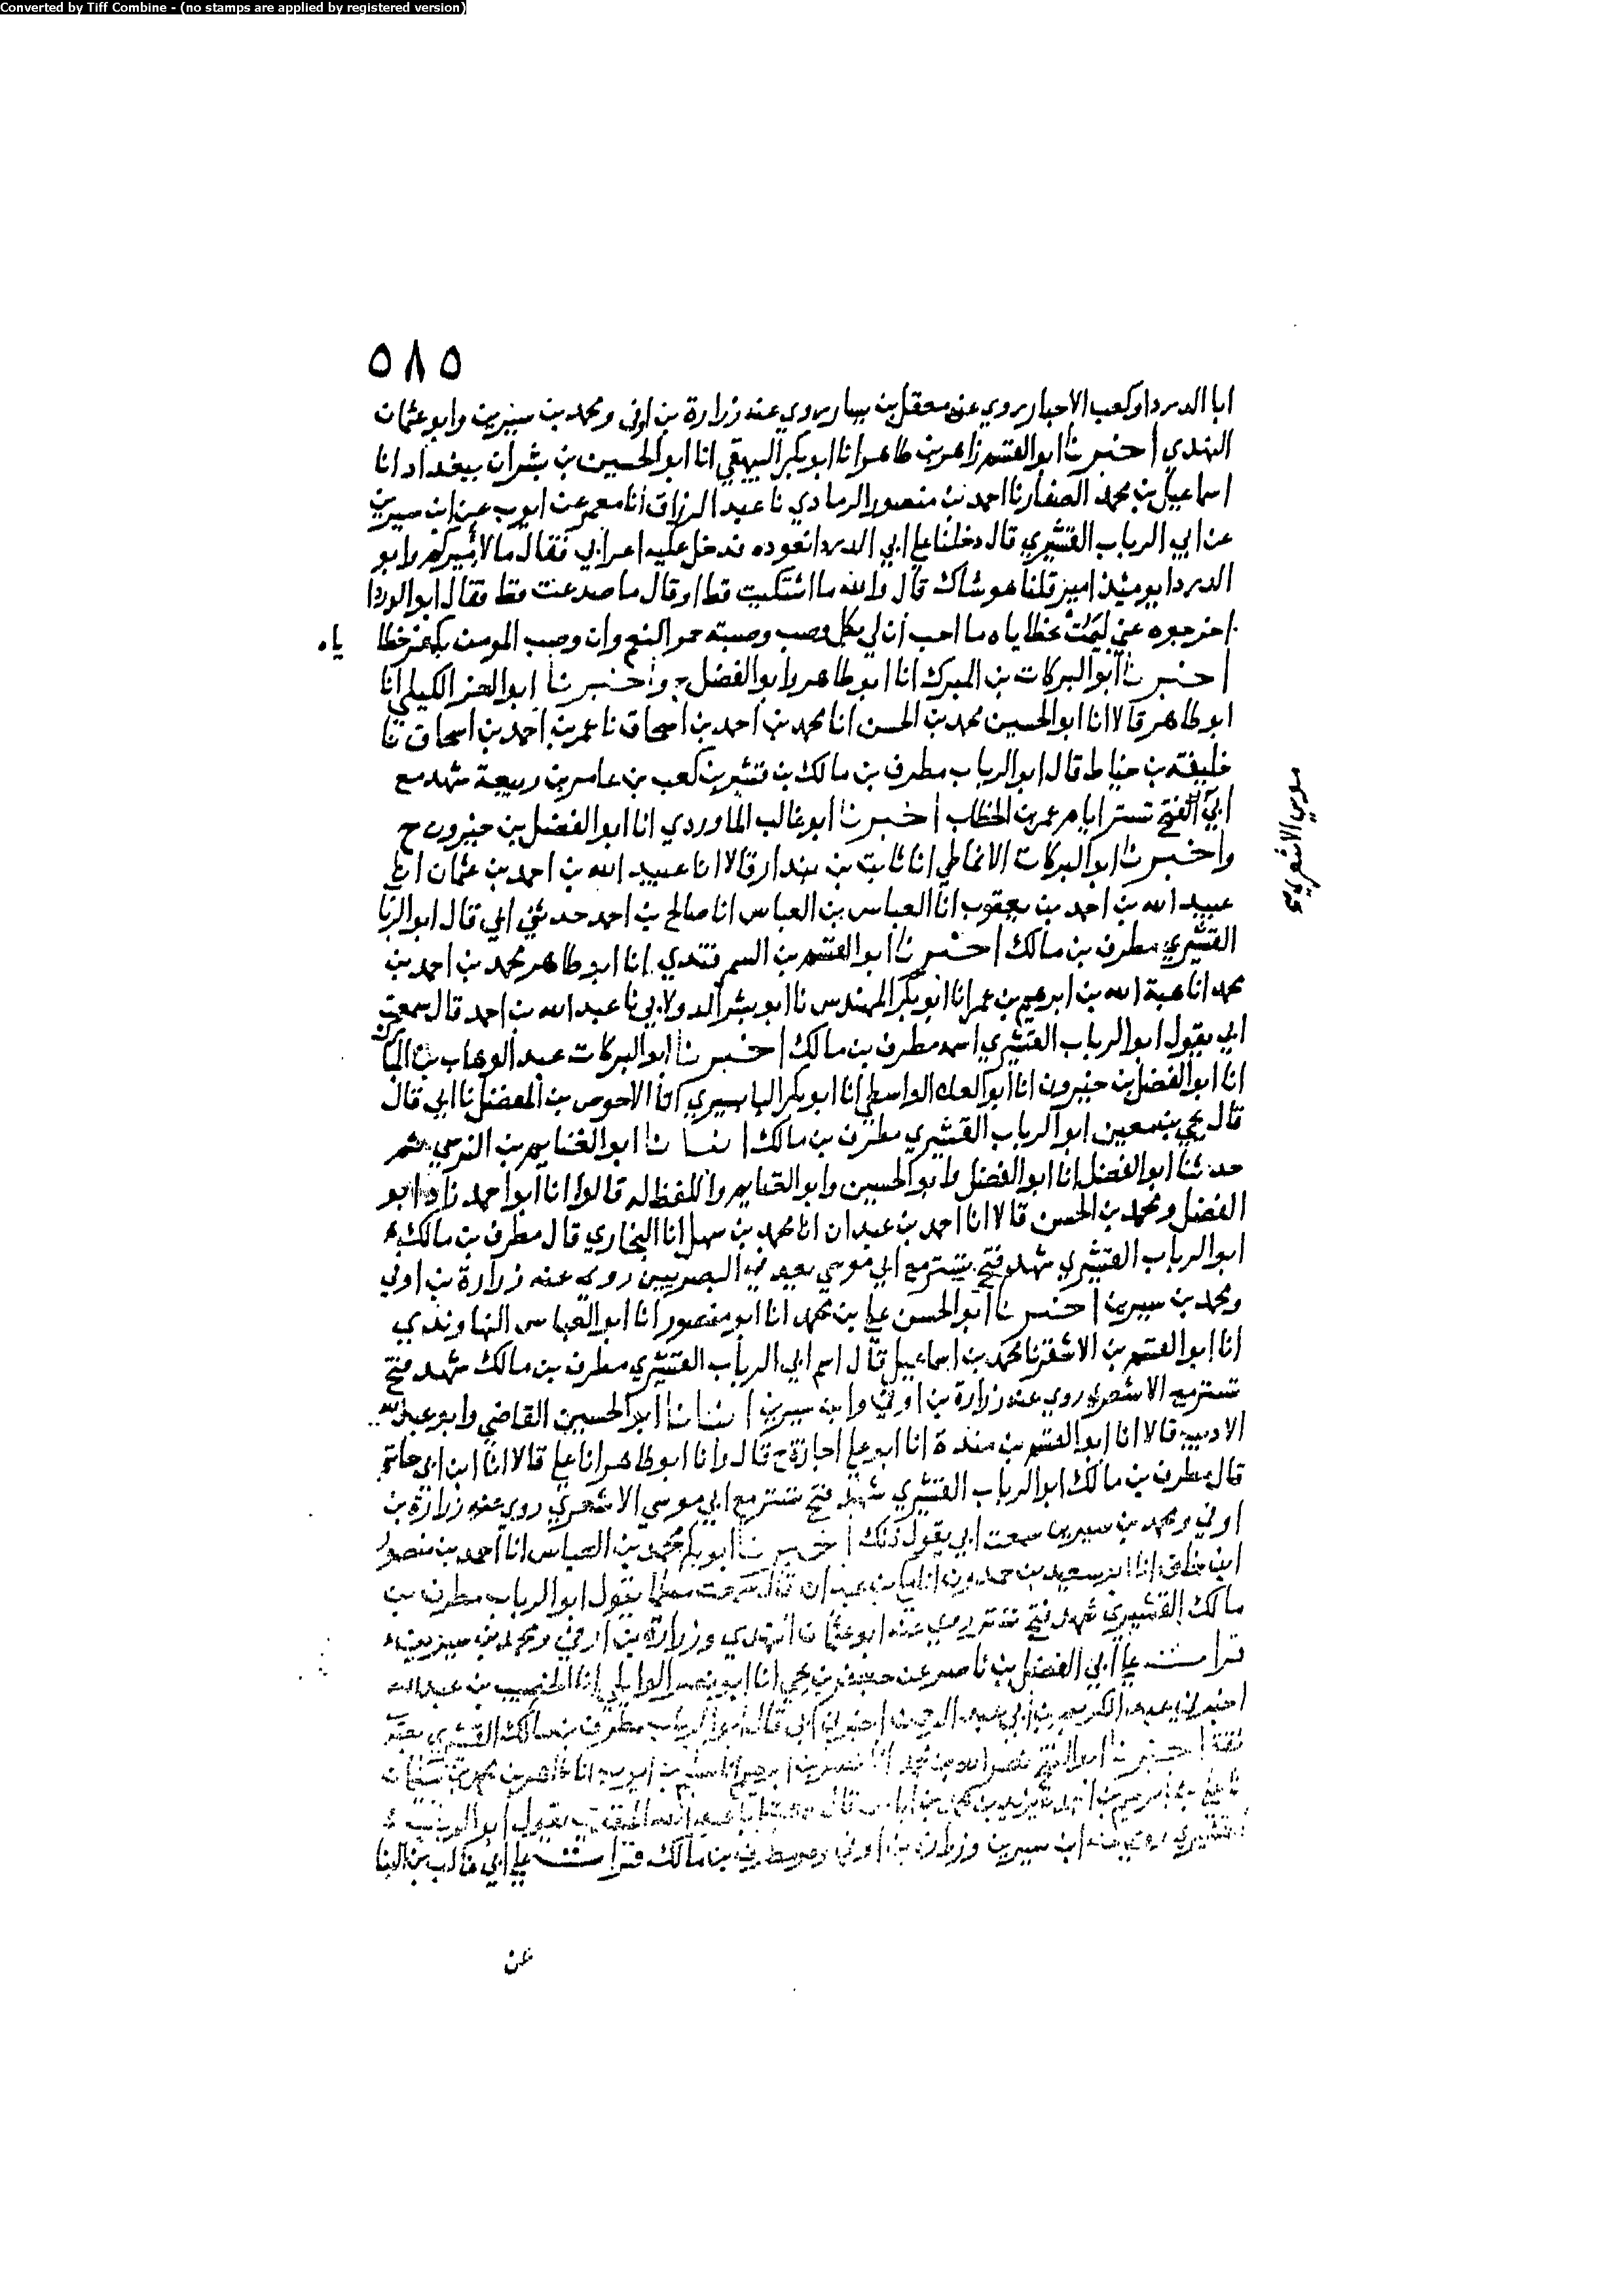 Converted by Tiff Combine - (no stamps are applied by registered version)
٥٨٥
ابا الدردا وكعب الاحبار روي عنه معقل بن يسار روي عنه زرارة بن اوفى ومحمد بن سيرين وابو عثمان
النهدي اخبرنا ابو القسم زاهر بن طاهر انا ابو بكر البيهقي انا ابو الحسين بن بشران ببغداد انا
اسماعيل بن محمد الصفار نا احمد بن منصور الرمادي نا عبد الرزاق انا معمر عن ايوب عن ابن سيرين
عن ابي الرباب القشيري قال دخلنا علي ابي الدردا نعوده فدخل عليه اعرابي فقال ما لاميركم وابو
الدردا يوميذ امير قلنا هو شاك قال والله ما اشتكيت قط او قال ما صدعت قط فقال ابو الدردا
اخرجوه عني ليمت بخطاياه ما احب ان لي بكل وصب وصبته حمر النعم وان وصب المومن يكفر خطا
ياه
اخبرنا ابو البركات بن المبرك انا ابو طاهر وابو الفضل ح واخبرنا ابو العز الكيلي انا
ابو طاهر قالا انا ابو الحسين محمد بن الحسن انا محمد بن احمد بن اسحاق نا عمر بن احمد بن اسحاق نا
خليفة بن خياط قال ابو الرباب مطرف بن مالك بن قشير بن كعب بن عامر بن ربيعة شهد مع
ابي الفتح تستر ايام عمر بن الخطاب اخبرنا ابو غالب الماوردي انا ابو الفضل بن خيرون ح
موسي الاشعري
واخبرنا ابو البركات الانماطي انا ثابت بن بندار قالا انا عبيد الله بن احمد بن عثمان انا
عبيد الله بن احمد بن يعقوب انا العباس بن العباس انا صالح بن احمد حدثني ابي قال ابو الربا
القشيري مطرف بن مالك اخبرنا ابو القسم بن السمرقندي انا ابو طاهر محمد بن احمد بن
محمد انا هبة الله بن ابرهيم بن عمر انا ابو بكر المهندس نا ابو بشر الدولابي نا عبد الله بن احمد قال سمعت
ابي يقول ابو الرباب القشيري اسمه مطرف بن مالك اخبرنا ابو البركات عبد الوهاب بن المبارك
انا ابو الفضل بن خيرون انا ابو العلا الواسطي انا ابو بكر البابسيري انا الاحوص بن المفضل نا ابي قال
قال يحي بن معين ابو الرباب القشيري مطرف بن مالك انبانا ابو الغنايم بن النرسي ثم
حدثنا ابو الفضل انا ابو الفضل وابو الحسين وابو الغنايم واللفظ له قالوا انا ابو احمد زاد ابو
الفضل ومحمد بن الحسن قالا انا احمد بن عبدان انا محمد بن سهل انا البخاري قال مطرف بن مالك
ابو الرباب القشيري شهد فتح تستر مع ابي موسي يعد في البصريين روي عنه زرارة بن اوفي
ومحمد بن سيرين اخبرنا ابو الحسن علي بن محمد انا ابو منصور انا ابو العباس النهاوندي
انا ابو القسم بن الاشقر نا محمد بن اسماعيل قال اسم ابي الرباب القشيري مطرف بن مالك شهد فتح
تستر مع الاشعري روي عنه زرارة بن اوفي وابن سيرين انبانا ابو الحسين القاضي وابو عبد الله
الاديب قالا انا ابو القسم بن مندة انا ابو علي اجازة ح قال وانا ابو طاهر انا علي قالا انا ابن ابي حاتم
قال مطرف بن مالك ابو الرباب القشيري شهد فتح تستر مع ابي موسي الاشعري روي عنه زرارة بن
اوفي ومحمد بن سيرين سمعت ابي يقول ذلك اخبرنا ابو بكر محمد بن العباس انا احمد بن منصور
ابن خلف انا ابو سعيد بن حمدون انا مكي بن عبدان قال سمعت مسلما يقول ابو الرباب مطرف بن
مالك القشيري شهد فتح تستر روي عنه ابو عثمان النهدي وزرارة بن اوفي ومحمد بن سيرين
قرات علي ابي الفضل بن ناصر عن جعفر بن يحي انا ابو نصر الوايلي انا الخصيب بن عبد الله
اخبرني عبد الكريم بن ابي عبد الرحمن اخبرني ابي قال ابو الرباب مطرف بن مالك القشيري
ثقة اخبرنا ابو الفتح نصر الله بن محمد انا نصر بن ابرهيم انا سليم بن ايوب انا طاهر بن محمد بن سليمان
نا علي بن ابرهيم بن احمد نا يزيد بن محمد بن اياس قال سمعت ابا عبد الله المقدمي يقول ابو الرباب
القشيري روي عنه ابن سيرين وزرارة بن اوفي وهو مطرف بن مالك قرات علي ابي غالب بن البنا
عن